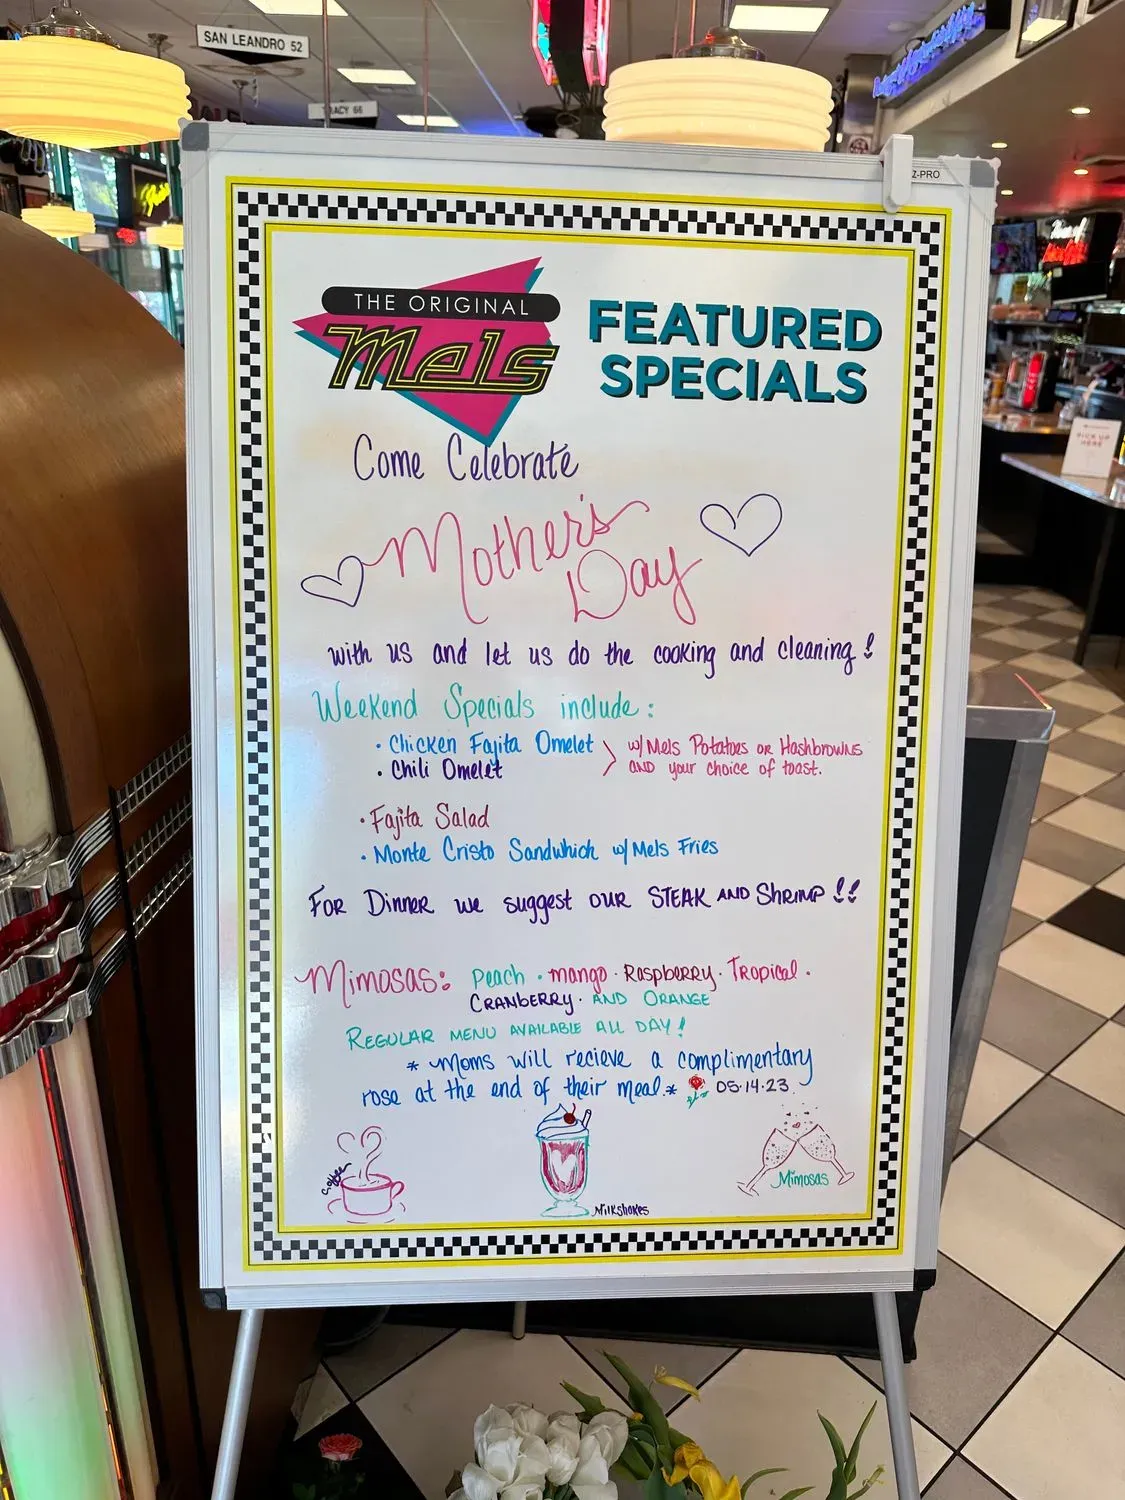 SAN LEANDRO 52
TRACY 66
Z-PRO
PICK UP
HERE
THE ORIGINAL
Mels
FEATURED
SPECIALS
Come Celebrate
Mother's
Day
with us and let us do the cooking and cleaning!
Weekend Specials include:
• Chicken Fajita Omelet
• Chili Omelet
w/ Mels Potatoes or Hashbrowns
AND your choice of toast.
• Fajita Salad
• Monte Cristo Sandwhich w/ Mels Fries
For Dinner we suggest our STEAK AND Shrimp!!
Mimosas: Peach · mango · Raspberry · Tropical ·
CRANbERRY · AND ORANGE
REGULAR MENU AVAILABLE ALL DAY!
* Moms will recieve a complimentary
rose at the end of their meal.* 05·14·23
Coffee
Milkshakes
Mimosas